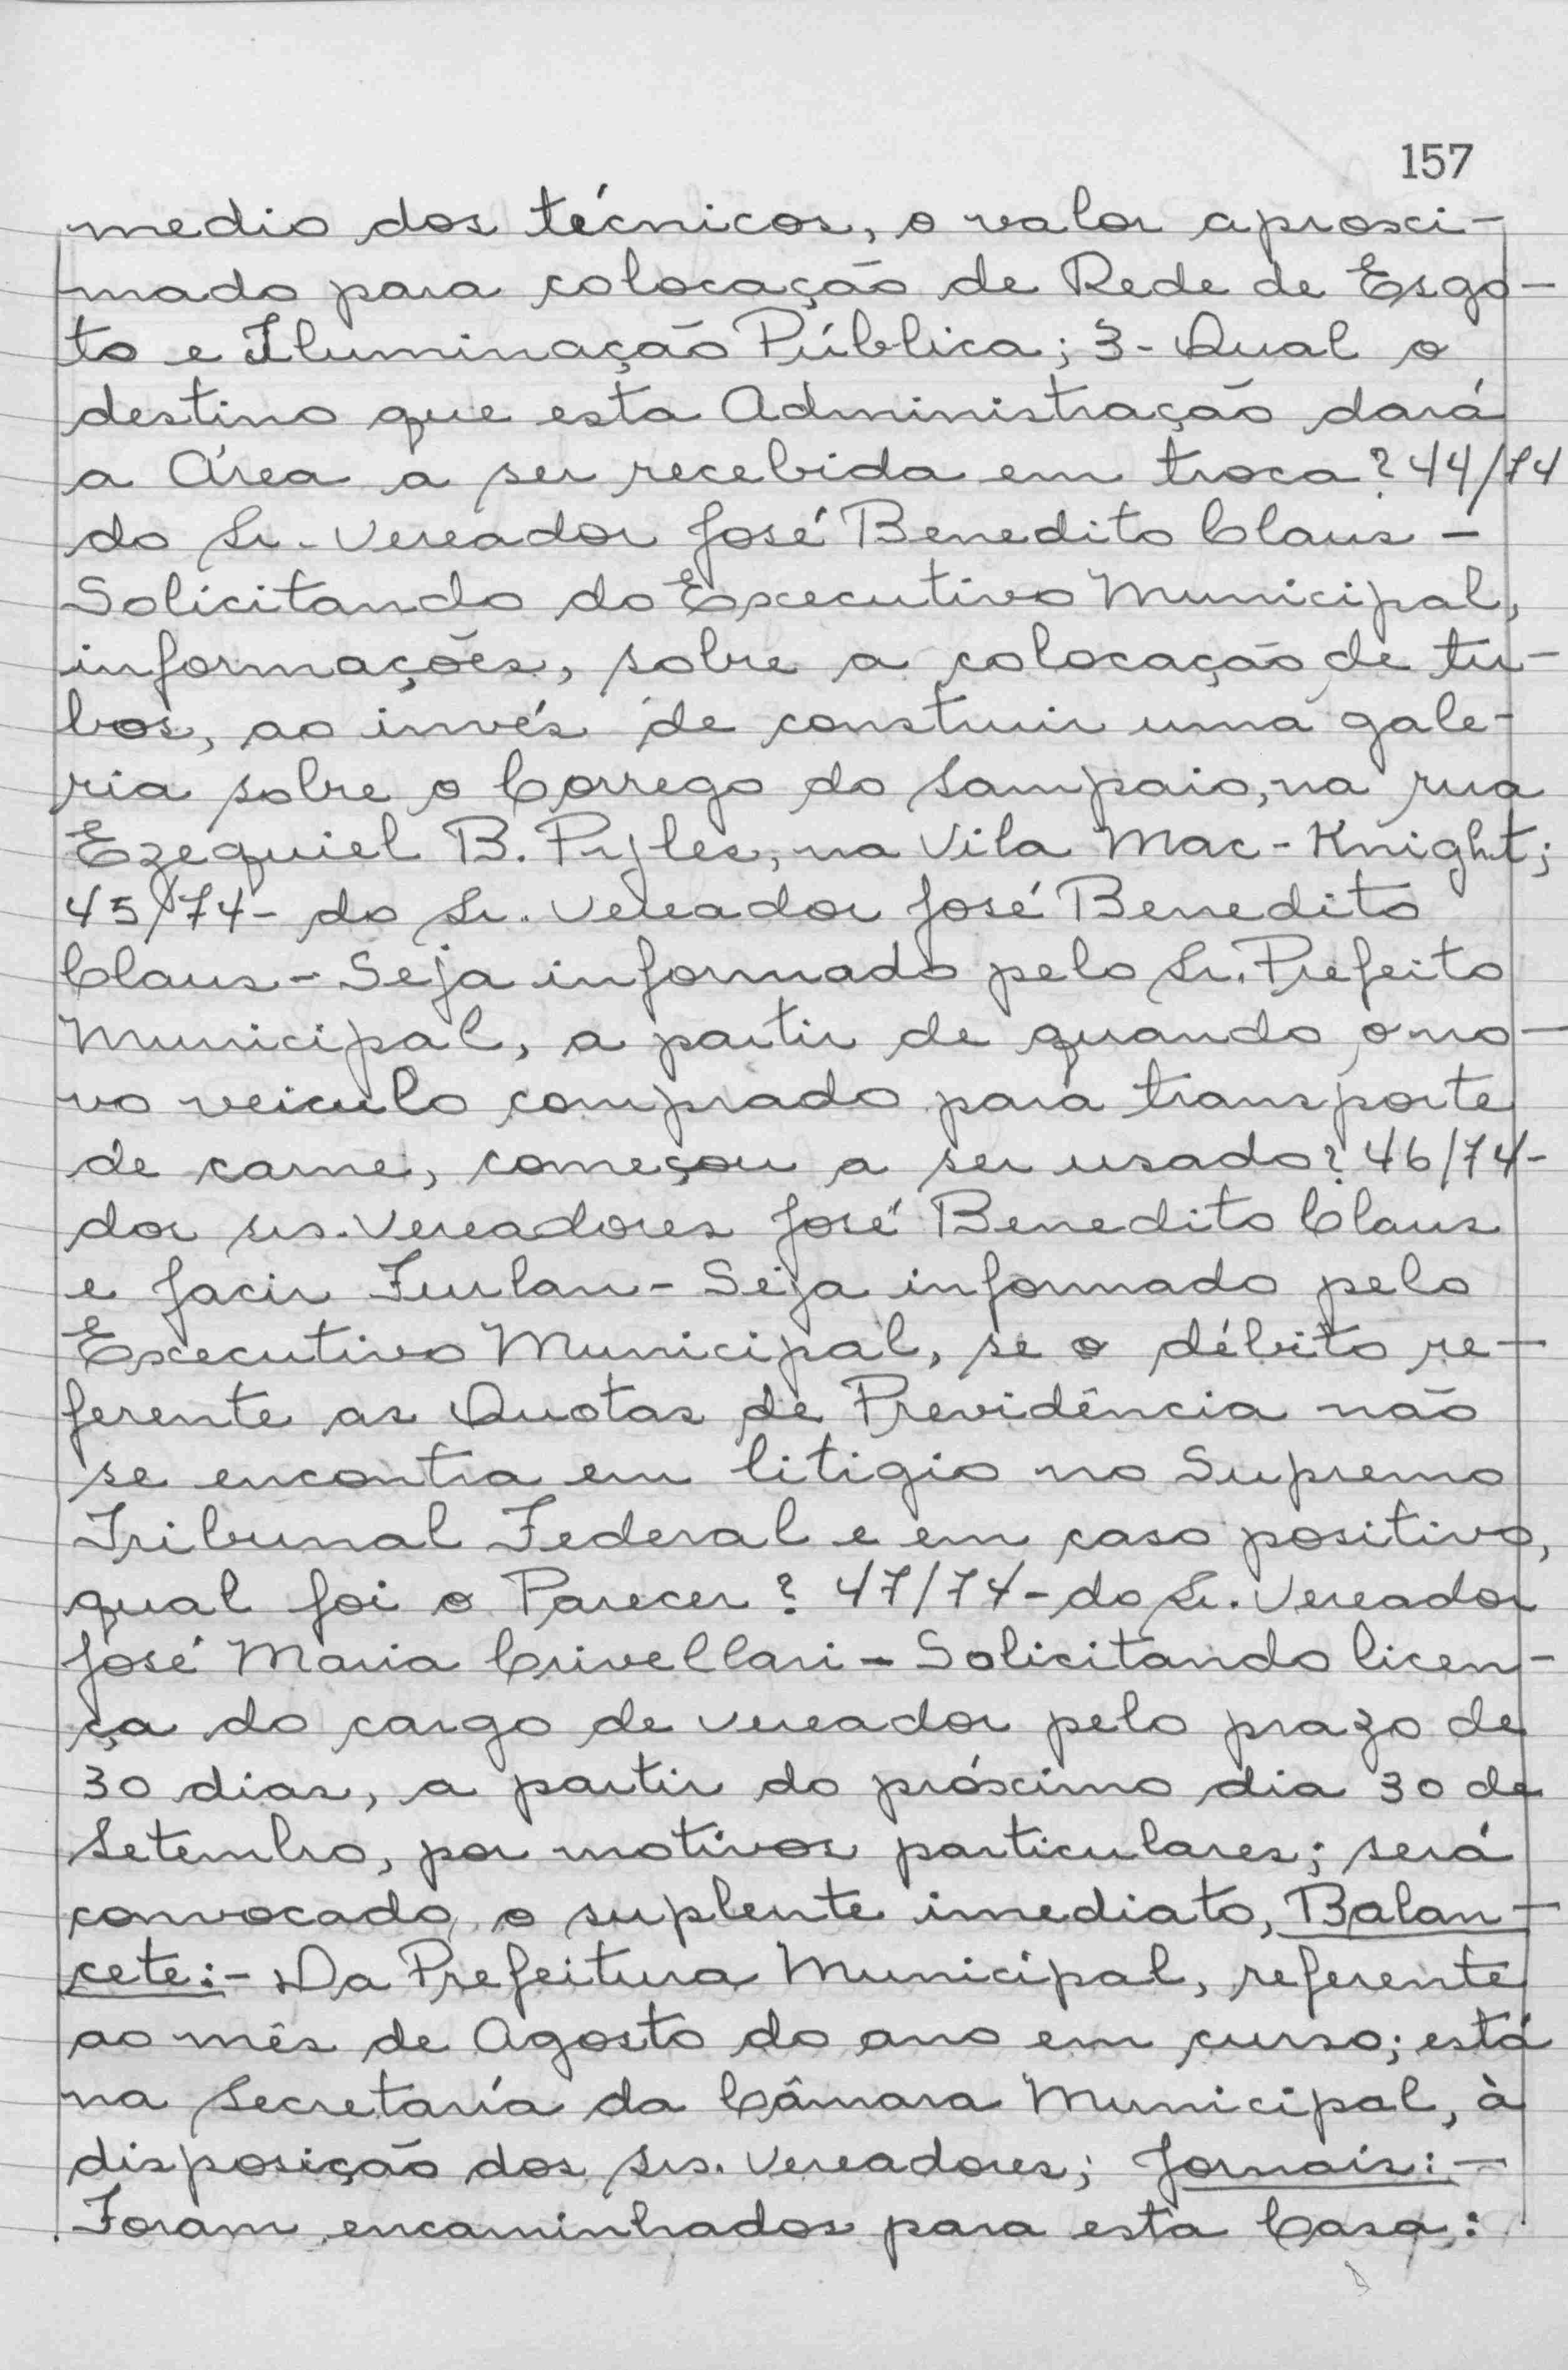 157
medio dos técnicos, o valor aproxi-
mado para colocação de Rede de Esgo-
to e Iluminação Pública; 3- Qual o
destino que esta Administração dará
a Área a ser recebida em troca? 44/74
do Sr. Vereador José Benedito Claus -
Solicitando do Executivo Municipal,
informações, sobre a colocação de tu-
bos, ao invés de construir uma gale-
ria sobre o Corrego do Sampaio, na rua
Ezequiel B. Pyles, na Vila Mac-Knight;
45/74- do Sr. Vereador José Benedito
Claus - Seja informado pelo Sr. Prefeito
Municipal, a partir de quando o no-
vo veiculo comprado para transporte
de carne, começou a ser usado? 46/74-
dos srs. Vereadores José Benedito Claus
e Jacir Furlan - Seja informado pelo
Executivo Municipal, se o débito re-
ferente as Quotas de Previdência não
se encontra em litigio no Supremo
Tribunal Federal e em caso positivo,
qual foi o Parecer? 47/74- do Sr. Vereador
José Maria Crivellari - Solicitando licen-
ça do cargo de vereador pelo prazo de
30 dias, a partir do próximo dia 30 de
Setembro, por motivos particulares; será
convocado o suplente imediato, Balan-
cete:- Da Prefeitura Municipal, referente
ao mês de Agosto do ano em curso; está
na Secretaría da Câmara Municipal, à
disposição dos srs. Vereadores; Jornais: -
Foram encaminhados para esta Casa: